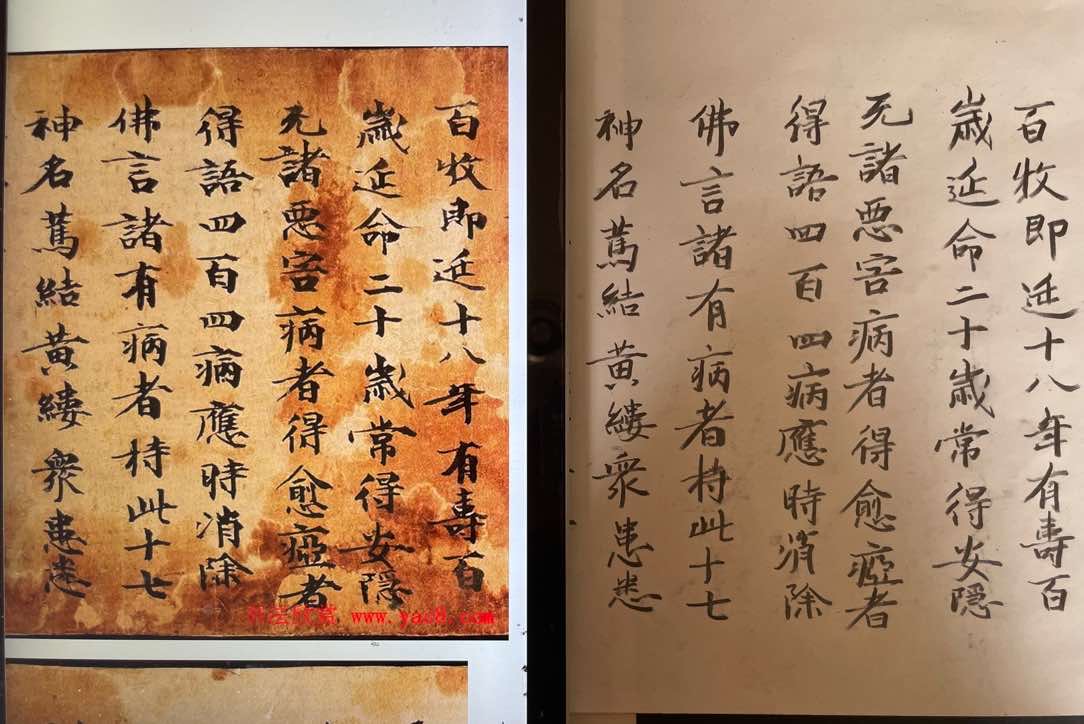 百牧即延十八年有壽百
歲延命二十歲常得安隱
无諸惡害病者得愈瘂者
得語四百四病應時消除
佛言諸有病者持此十七
神名蒿結黃縷衆患悉
www.yac8.com
百牧即延十八年有壽百
歲延命二十歲常得安隱
无諸惡害病者得愈瘂者
得語四百四病應時消除
佛言諸有病者持此十七
神名蒿結黃縷衆患悉